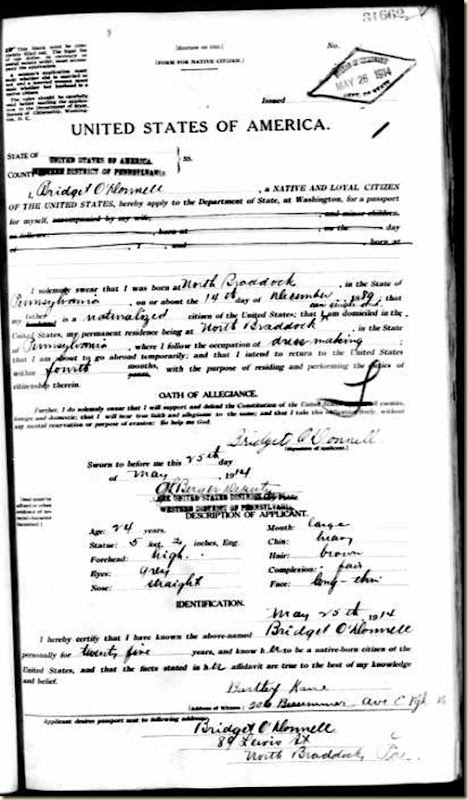 31662
8
[EDITION OF 1911.]
[FORM FOR NATIVE CITIZEN.]
No.
MAY 26 1914
Issued
UNITED STATES OF AMERICA.
STATE OF
UNITED STATES OF AMERICA.
COUNTY
WESTERN DISTRICT OF PENNSYLVANIA
ss.
I, Bridget O'Donnell, a NATIVE AND LOYAL CITIZEN
OF THE UNITED STATES, hereby apply to the Department of State, at Washington, for a passport
for myself, accompanied by my wife, and minor children,
as follows: , born at , on the day
of , 1 , and , born at
I solemnly swear that I was born at North Braddock, in the State of
Pennsylvania, on or about the 14th day of December, 1889; that
my father
is a naturalized citizen of the United States; that I am domiciled in the
United States, my permanent residence being at North Braddock, in the State
of Pennsylvania, where I follow the occupation of dress making;
that I am about to go abroad temporarily; and that I intend to return to the United States
within fourth months, with the purpose of residing and performing the duties of
years
citizenship therein.
OATH OF ALLEGIANCE.
Further, I do solemnly swear that I will support and defend the Constitution of the United States enemies,
foreign and domestic; that I will bear true faith and allegiance to the same; and that I take this obligation freely, without
any mental reservation or purpose of evasion: So help me God.
Bridget O'Donnell
(Signature of applicant.)
Sworn to before me this 25th day
of May, 1914
Berger Deputy
CLERK UNITED STATES DISTRICT
WESTERN DISTRICT OF PENNSYLVANIA
DESCRIPTION OF APPLICANT.
Age: 24 years.
Mouth: large
Stature: 5 feet, 2 inches, Eng.
Chin: heavy
Forehead: high.
Hair: brown
Eyes: grey
Complexion: fair
Nose: straight
Face: long-thin
IDENTIFICATION.
May 25th, 1914
I hereby certify that I have known the above-named Bridget O'Donnell
personally for twenty five years, and know her to be a native-born citizen of the
United States, and that the facts stated in her affidavit are true to the best of my knowledge
and belief.
Bartley Kane
(Address of Witness) 206 Bessemer Ave E Pgh
Applicant desires passport sent to following address:
Bridget O'Donnell
89 Lewis St
North Braddock, Pa.